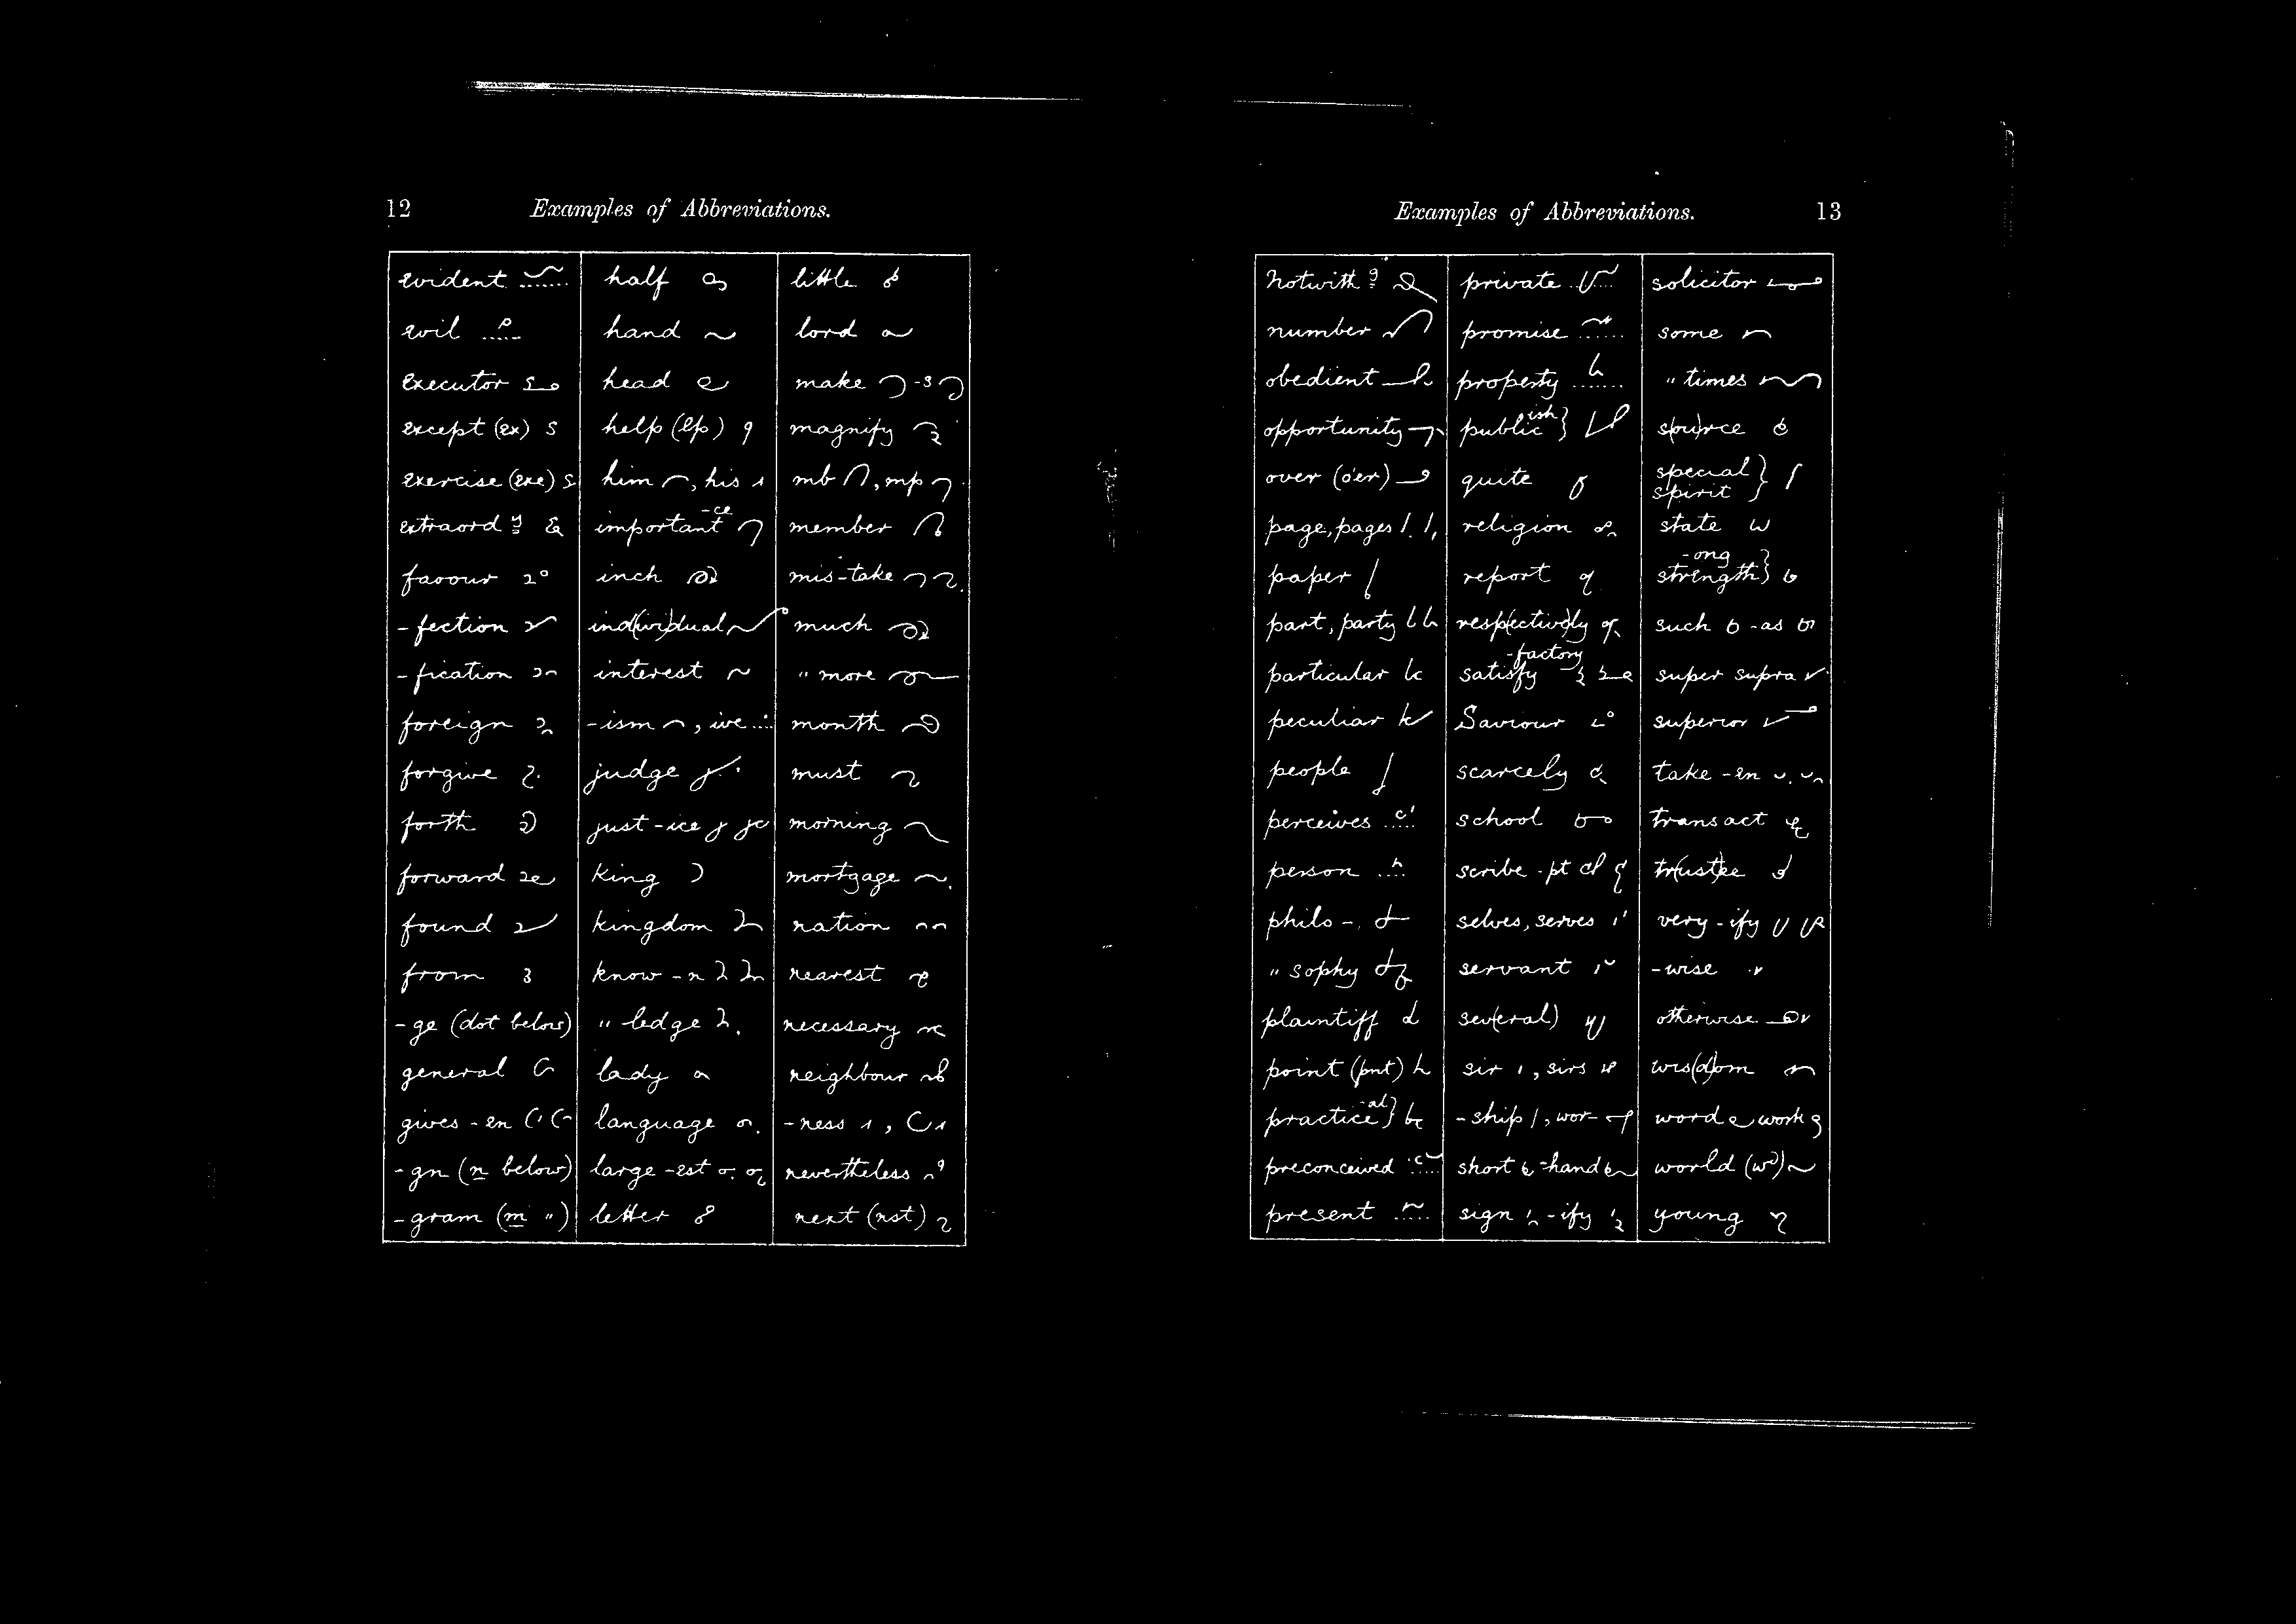 12 Examples of Abbreviations.
evident half little
evil hand lord
executor head make -s
except (ex) help (lp) magnify
exercise (exe) him , his mb , mp
extraord y important -ce member
favour inch mis-take
-fection ind(ivi)dual much
-fication interest " more
foreign -ism , ive month
forgive judge must
forth just-ice morning
forward king mortgage
found kingdom nation
from know -n nearest
-ge (dot below) " ledge necessary
general lady neighbour
gives -en language -ness ,
-gn (n below) large -est nevertheless
-gram (m ") letter next (nst)
Examples of Abbreviations. 13
notwith g private solicitor
number promise some
obedient property " times
opportunity public ish } s(ou)rce
over (o'er) quite special } spirit
page, pages religion state
paper report strength -ong }
part, party resp(ective)ly such -as
particular satisfy -factory } super supra
peculiar Saviour superior
people scarcely take -en
perceives school transact
person scribe -pt tr(ust)ee
philo- selves, serves very -ify
" sophy servant -wise
plaintiff sev(eral) otherwise
point (pnt) sir , sirs wis(d)om
practice -al } -ship , wor- word work
preconceived short -hand world (wd)
present sign -ify young